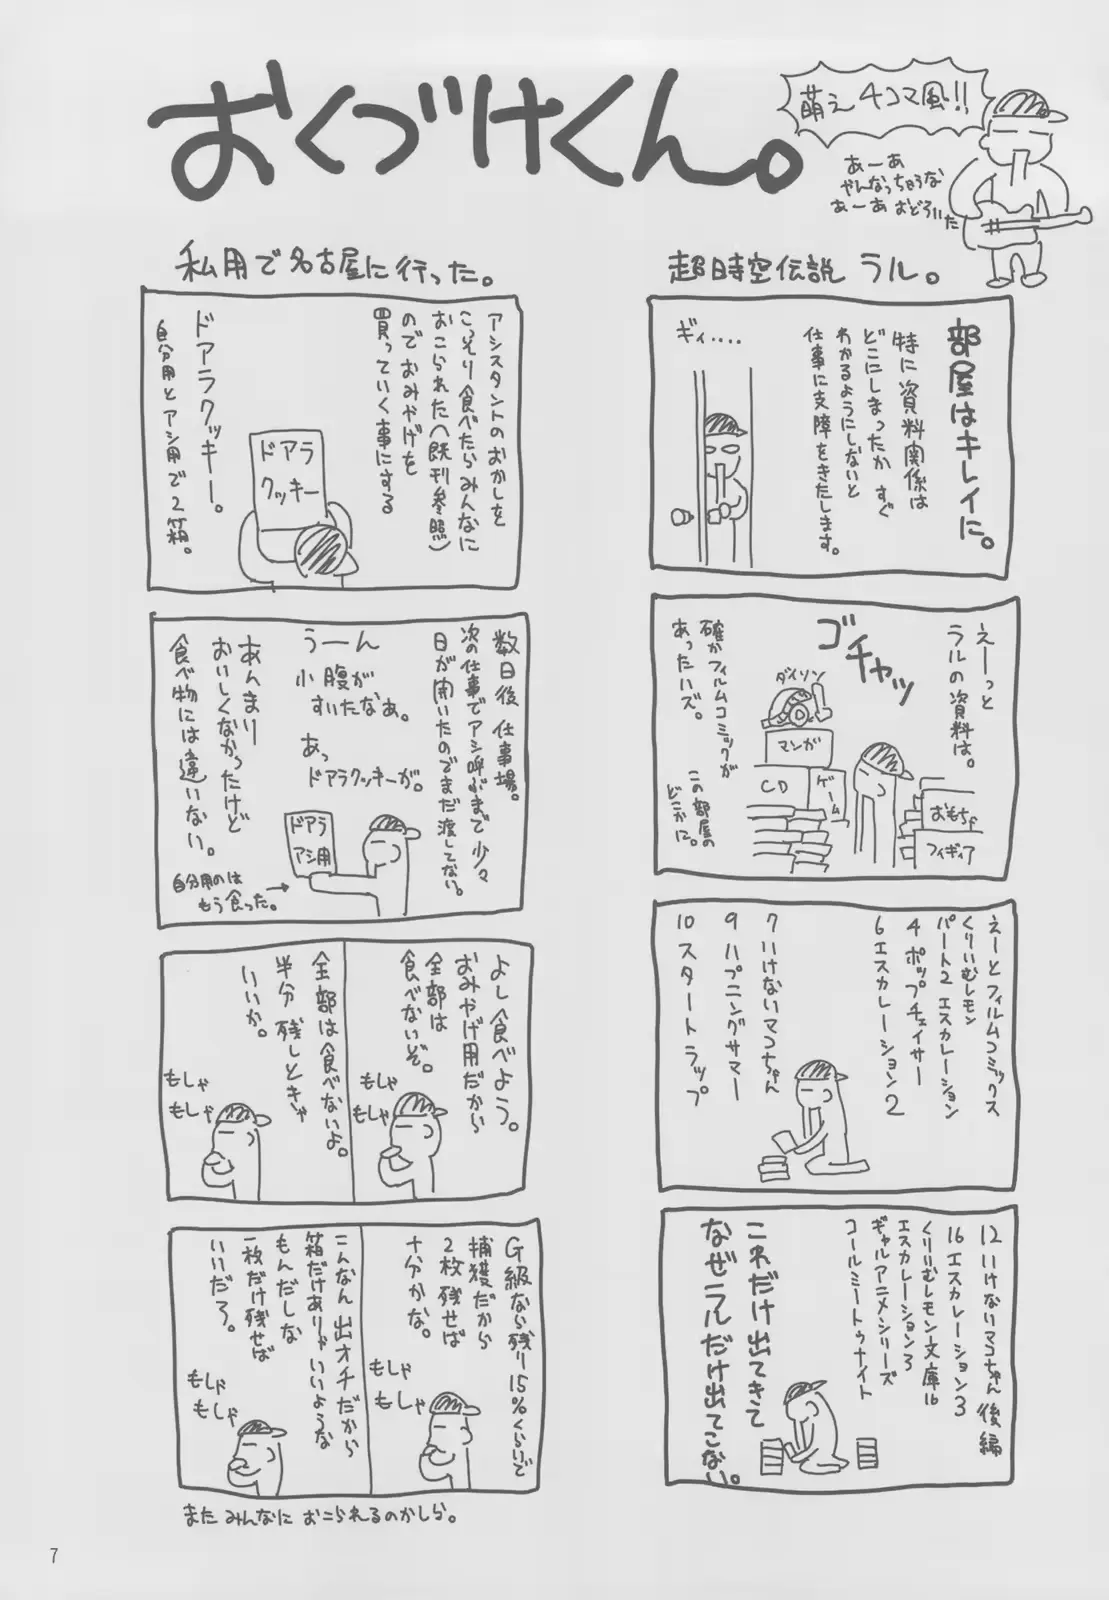 おくづけくん。
萌え4コマ風!!
あーあ
やんなっちゃうな
あーあ おどろいた
超時空伝説 ラル。
部屋はキレイに。
特に資料関係は
どこにしまったか すぐ
わかるようにしないと
仕事に支障をきたします。
ギィ....
えーっと
ラルの資料は。
ゴチャッ
ダイソン
マンガ
CD
ゲーム
おもちゃ
フィギィア
確かフィルムコミックが
あったハズ。
この部屋の
どこかに。
えーとフィルムコミックス
くりいむレモン
パート2 エスカレーション
4 ポップチェイサー
6 エスカレーション2
7 いけないマコちゃん
9 ハプニングサマー
10 スタートラップ
12 いけないマコちゃん 後編
16 エスカレーション3
くりいむレモン文庫16
エスカレーション3
ギャルアニメシリーズ
コールミートゥナイト
これだけ出てきて
なぜラルだけ出てこない。
私用で名古屋に行った。
アシスタントの おかしを
こっそり食べたらみんなに
おこられた(既刊参照)
ので おみやげを
買っていく事にする
ドアラクッキー。
自分用とアシ用で2箱。
ドアラ
クッキー
数日後 仕事場。
次の仕事でアシ呼ぶまで少々
日が開いたのでまだ渡してない。
うーん
小腹が
すいたなぁ。
あっ
ドアラクッキーが。
あんまり
おいしくなかったけど
食べ物には違いない。
ドアラ
アシ用
自分用のは
もう食った。
よし食べよう。
おみやげ用だから
全部は
食べないぞ。
もしゃ
もしゃ
全部は食べないよ。
半分 残しときゃ
いいか。
もしゃ
もしゃ
G級なら残り15%くらいで
捕獲だから
2枚 残せば
十分かな。
もしゃ
もしゃ
こんなん 出オチだから
箱だけありゃいいような
もんだしな
一枚だけ残せば
いいだろ。
もしゃ
もしゃ
また みんなに おこられるのかしら。
7